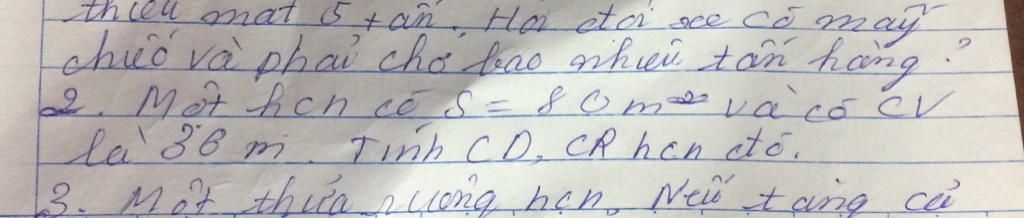 thiếu mất 5 tấn. Hỏi đội xe có mấy
chiếc và phải chở bao nhiêu tấn hàng?
2. Một hcn có S = 80m² và có CV
là 36 m. Tính CD, CR hcn đó.
3. Một thửa ruộng hcn. Nếu tăng cả